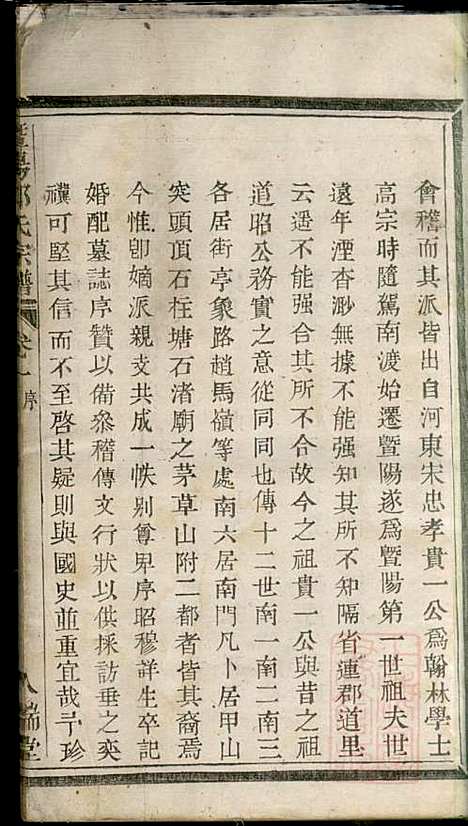 會稽而其派皆出自河東宋忠孝貴一公爲翰林學士
高宗時隨駕南渡始遷暨陽遂爲暨陽第一世祖夫世
遠年湮杳渺無據不能强知其所不知隔省連郡道里
云遥不能强合其所不合故今之祖貴一公與昔之祖
道昭公務實之意從同同也傳十二世南一南二南三
各居街亭象路趙馬嶺等處南六居南門凡卜居甲山
突頭頂石柱塘石渚廟之茅草山附二都者皆其裔焉
今惟卽嫡派親支共成一帙别尊卑序昭穆詳生卒記
婚配墓誌序贊以備叅稽傳文行狀以供採訪垂之奕
禩可堅其信而不至啓其疑則與國史並重宜哉于珍
暨陽 氏宗譜 卷一 序 八瑞堂